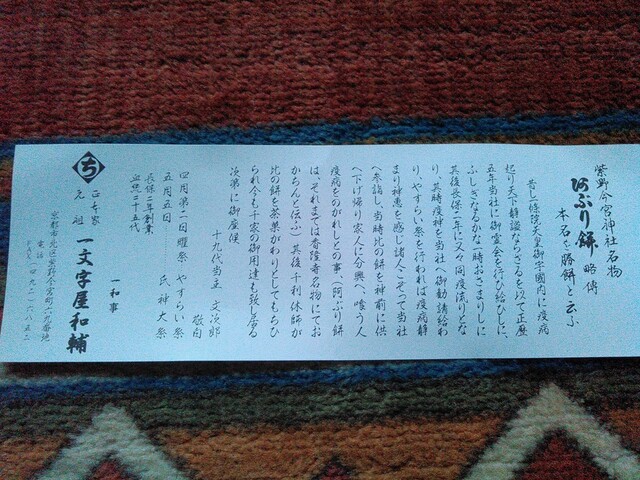 紫野今宮神社名物
あぶり餅 略傳
本名を勝餅と云ふ
昔一條院天皇御宇國内に疫病
起り天下静謐ならざるを以て正歴
五年当社に御霊会を行ひ給ひしに、
ふしぎなるかな一時おさまりしに
其後長保二年に又々同疫流行とな
り、其時疫神を当社へ御勧請給わ
り、やすらい祭を行われば疫病静
まり神恵を感じ諸人こぞって当社
へ参詣し、当時比の餅を神前に供
へ下げ帰り家人に分與へ、喰う人
疫病をのがれしとの事(阿ぶり餅
は、それまでは香隆寺名物にてお
かちんと伝ふ)其後千利休師が
比の餅を茶菓がわりとしてもちひ
られ今も千家の御用達も致し居る
次第に御座候
敬白
十九代当主 文次郎
四月第二日曜祭 やすらい祭
五月五日 氏神大祭
長保二年創業
血統二十五代
ち
正本家
元祖 一文字屋和輔
一和事
京都市北区紫野今宮町六九番地
電話